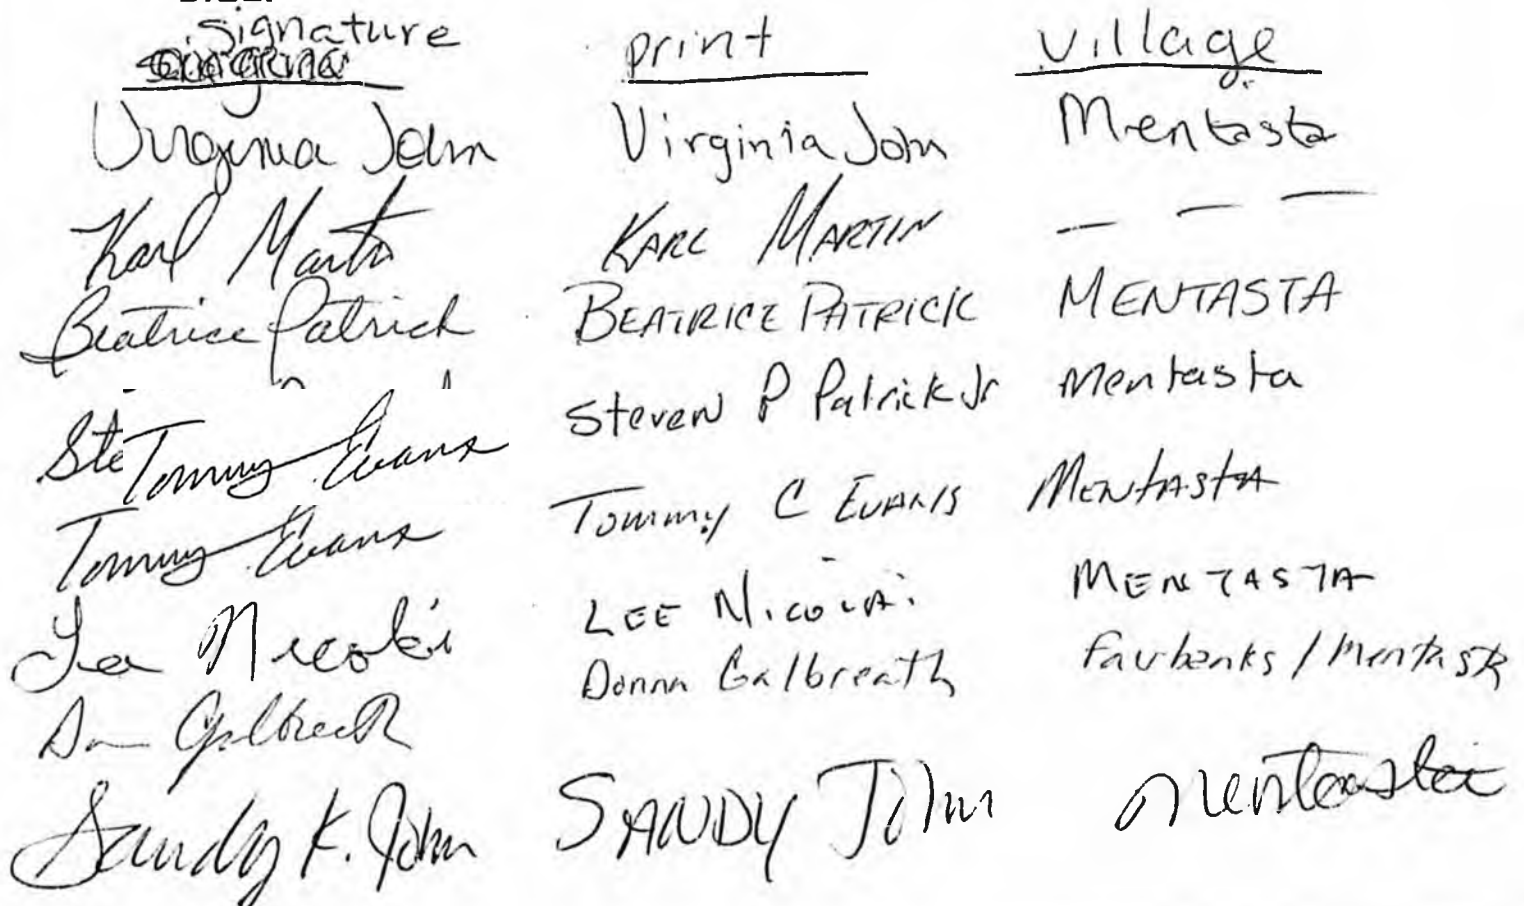 signature print village
Virginia John Virginia John Mentasta
Karl Martin KARL MARTIN — — —
Beatrice Patrick BEATRICE PATRICK MENTASTA
Ste Tommy Evans Steven P Patrick Jr Mentasta
Tommy Evans Tommy C EVANS MENTASTA
Lee Nicolai LEE NICOLAI MENTASTA
Galbreath Donna Galbreath Fairbanks / Mentasta
Sandy K. John SANDY John Mentasta